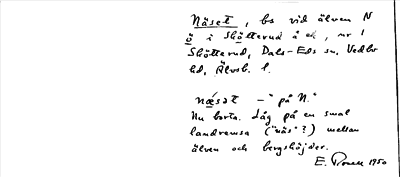 Näset, bs vid älven N
ö i Skötterud å ek, nr 1
Skötterud, Dals-Eds sn, Vedbo
hd, Älvsb. l.
nǽsət – "på N."
Nu borta. Låg på en smal
landremsa ("näs"?) mellan
älven och bergshöjder.
E. 1950